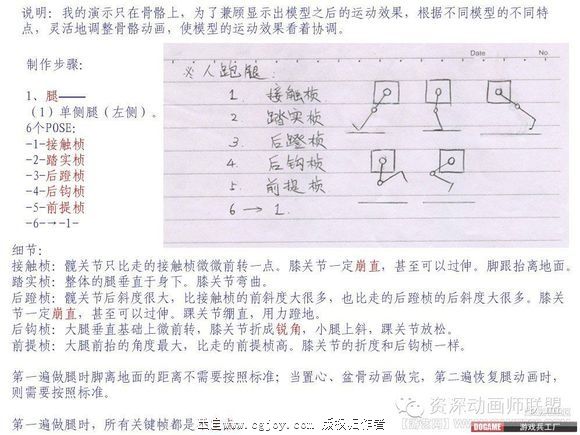 说明: 我的演示只在骨骼上, 为了兼顾显示出模型之后的运动效果, 根据不同模型的不同特
点, 灵活地调整骨骼动画, 使模型的运动效果看着协调。
制作步骤:
1、腿——
(1) 单侧腿 (左侧) 。
6个POSE:
-1-接触桢
-2-踏实桢
-3-后蹬桢
-4-后钩桢
-5-前提桢
-6-→-1-
Date
No.
※人跑腿
1. 接触桢
2 踏实桢
3. 后蹬桢
4 后钩桢
5. 前提桢
6 → 1.
细节:
接触桢: 髋关节只比走的接触桢微微前转一点。膝关节一定崩直, 甚至可以过伸。脚跟抬离地面。
踏实桢: 整体的腿垂直于身下。膝关节弯曲。
后蹬桢: 髋关节后斜度很大, 比接触桢的前斜度大很多, 也比走的后蹬桢的后斜度大很多。膝关
节一定崩直, 甚至可以过伸。踝关节绷直, 用力蹬地。
后钩桢: 大腿垂直基础上微前转, 膝关节折成锐角, 小腿上斜, 踝关节放松。
前提桢: 大腿前抬的角度最大, 比走的前提桢高。膝关节的折度和后钩桢一样。
第一遍做腿时脚离地面的距离不需要按照标准; 当置心、盆骨动画做完, 第二遍恢复腿动画时,
则需要按照标准。
第一遍做腿时, 所有关键帧都是
www.cgjoy.com 版权归作者
资深动画师联盟
DOGAME 游戏兵工厂